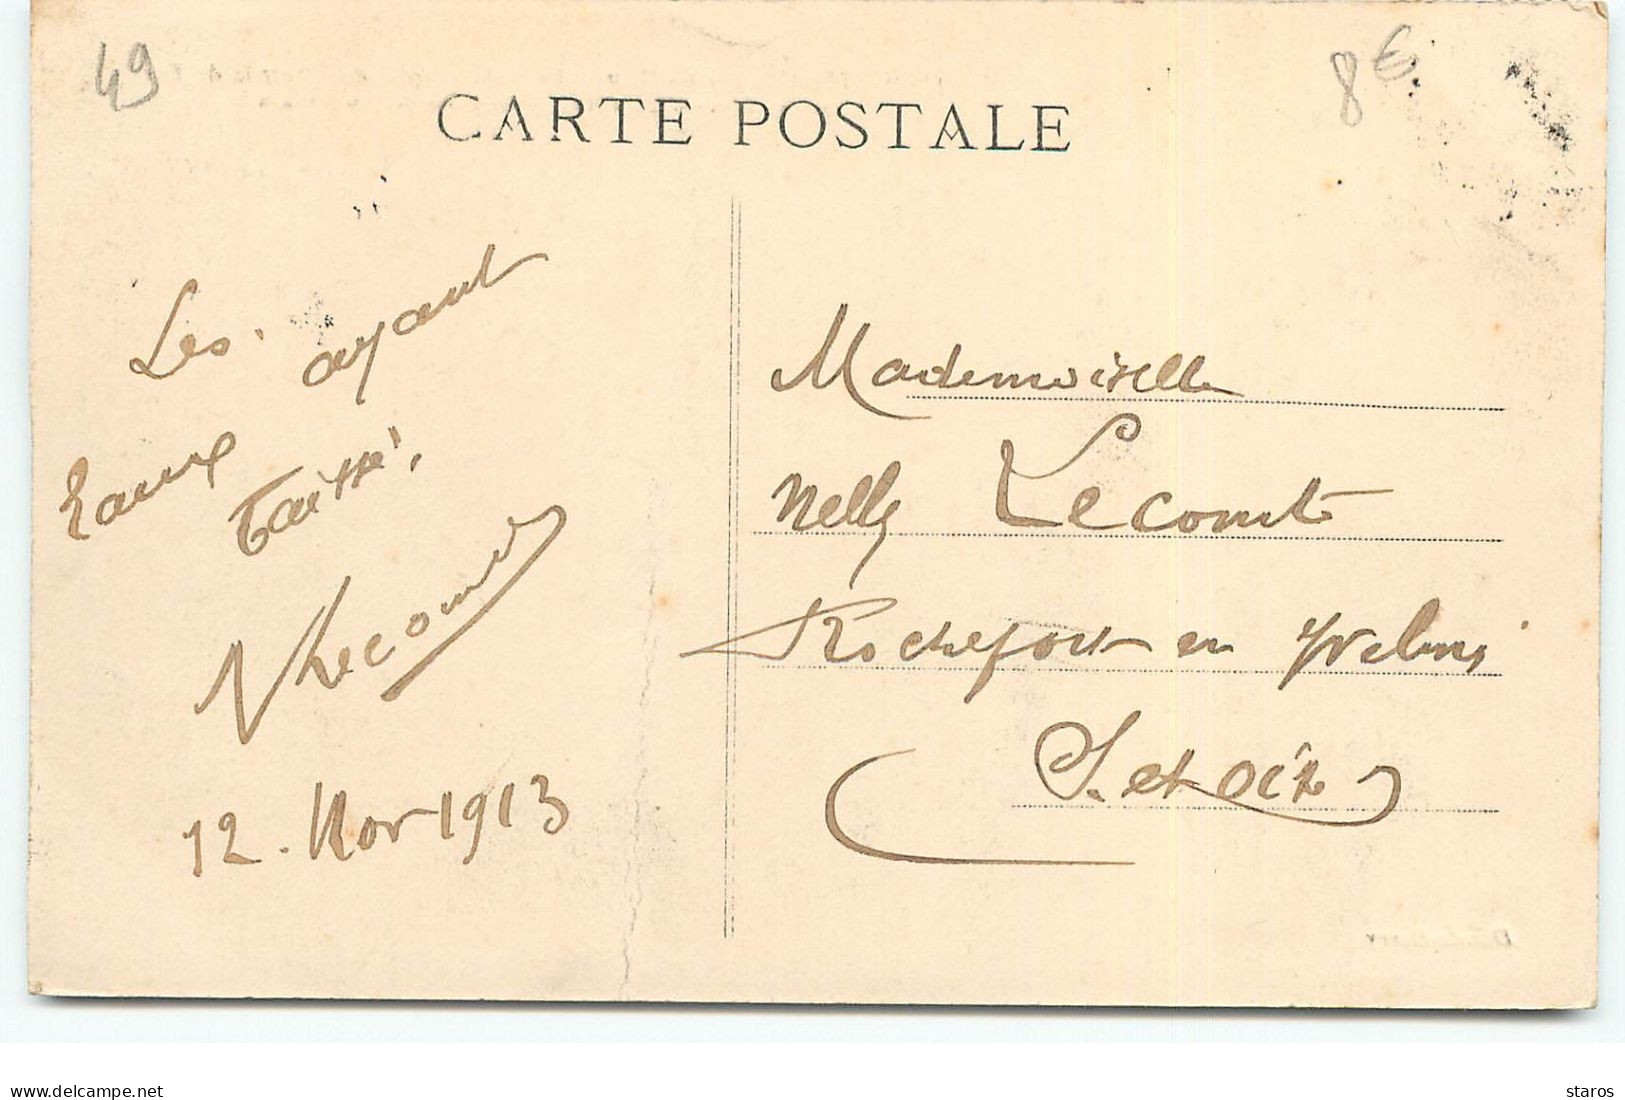 49
8€
CARTE POSTALE
Les ayant
Eaux baissé,
NLecomte
12. Nov 1913
Mademoiselle
Nelly Lecomte
Rochefort en Yvelines
S. et Oise
www.delcampe.net
staros